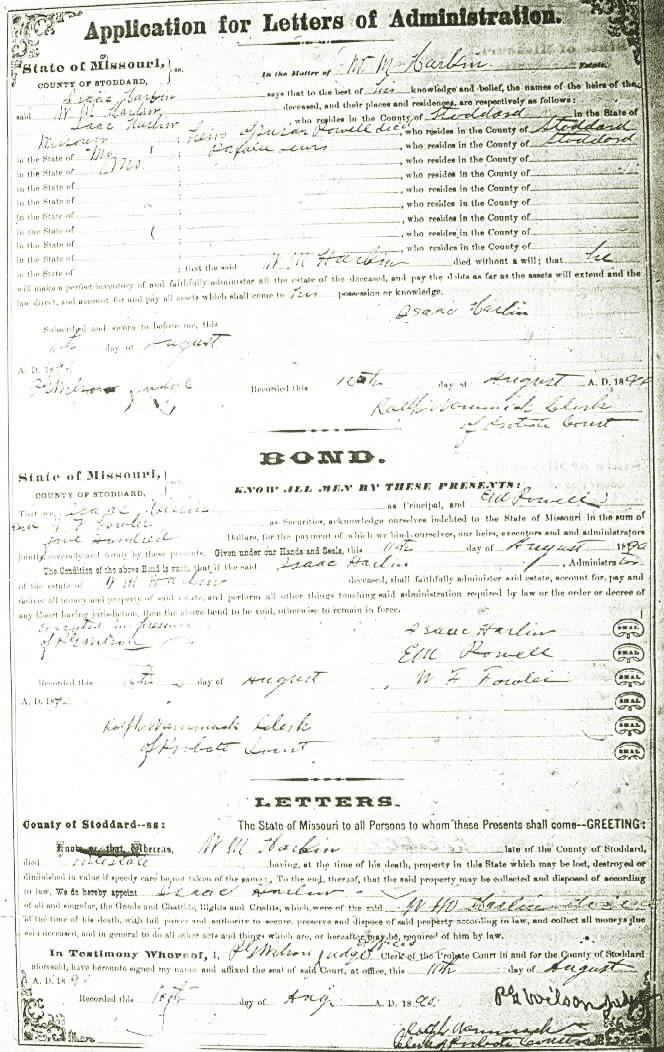 Application for Letters of Administration.
State of Missouri,
COUNTY OF STODDARD, ss.
In the Matter of W M Harlin Estate.
Isaac Harlin says that to the best of his knowledge and belief, the names of the heirs of the
said W. M. Harlin deceased, and their places and residences, are respectively as follows:
Isaac Harlin , who resides in the County of Stoddard in the State of
Missouri ; heirs of Susan Powell decd , who resides in the County of Stoddard
in the State of Mo ; , who resides in the County of Stoddard
in the State of Mo. ; , who resides in the County of
in the State of ; , who resides in the County of
in the State of ; , who resides in the County of
in the State of ; , who resides in the County of
in the State of ; , who resides in the County of
in the State of ; , who resides in the County of
in the State of ; that the said W. M Harlin died without a will; that he
will make a perfect inventory of and faithfully administer all the estate of the deceased, and pay the debts as far as the assets will extend and the
law direct, and account for and pay all assets which shall come to his possession or knowledge.
Isaac Harlin
Subscribed and sworn to before me, this
day of August
A. D. 18
P G Wilson Judge
Recorded this 16th day of August A. D. 1890
Ralph Wammack Clerk
of Probate Court
BOND.
State of Missouri,
COUNTY OF STODDARD, ss.
KNOW ALL MEN BY THESE PRESENTS:
That we, Isaac Harlin as Principal, and E M Powell
and W F Fowler as Securities, acknowledge ourselves indebted to the State of Missouri in the sum of
five Hundred Dollars, for the payment of which we bind ourselves, our heirs, executors and and administrators
jointly, severally and firmly by these presents. Given under our Hands and Seals, this 11th day of August 1890
The Condition of the above Bond is such, that if the said Isaac Harlin , Administrator
of the estate of W M Harlin deceased, shall faithfully administer said estate, account for, pay and
deliver all money and property of said estate, and perform all other things touching said administration required by law or the order or decree of
any Court having jurisdiction, then the above bond to be void, otherwise to remain in force.
Executed in presence
of P G Wilson
Isaac Harlin SEAL
E M Powell SEAL
W F Fowler SEAL
SEAL
SEAL
SEAL
Recorded this 16th day of August
A. D. 18
Ralph Wammack Clerk
of Probate Court
LETTERS.
County of Stoddard--ss: The State of Missouri to all Persons to whom these Presents shall come--GREETING:
Know ye that, Whereas, W M Harlin late of the County of Stoddard,
died intestate having, at the time of his death, property in this State which may be lost, destroyed or
diminished in value if speedy care be not taken of the same; To the end, therefor, that the said property may be collected and disposed of according
to law, We do hereby appoint Isaac Harlin
of all and singular, the Goods and Chattels, Rights and Credits, which were of the said W M Harlin
at the time of his death, with full power and authority to secure, preserve and dispose of said property according to law, and collect all moneys due
said deceased, and in general to do all other acts and things which are, or hereafter may be, required of him by law.
In Testimony Whereof, I, P G Wilson Judge Clerk of the Probate Court in and for the County of Stoddard
aforesaid, have hereunto signed my name and affixed the seal of said Court, at office, this 11th day of August
A. D. 18
P G Wilson Judge
Recorded this 16th day of Aug A. D. 1890.
Ralph Wammack
Clerk of Probate Court